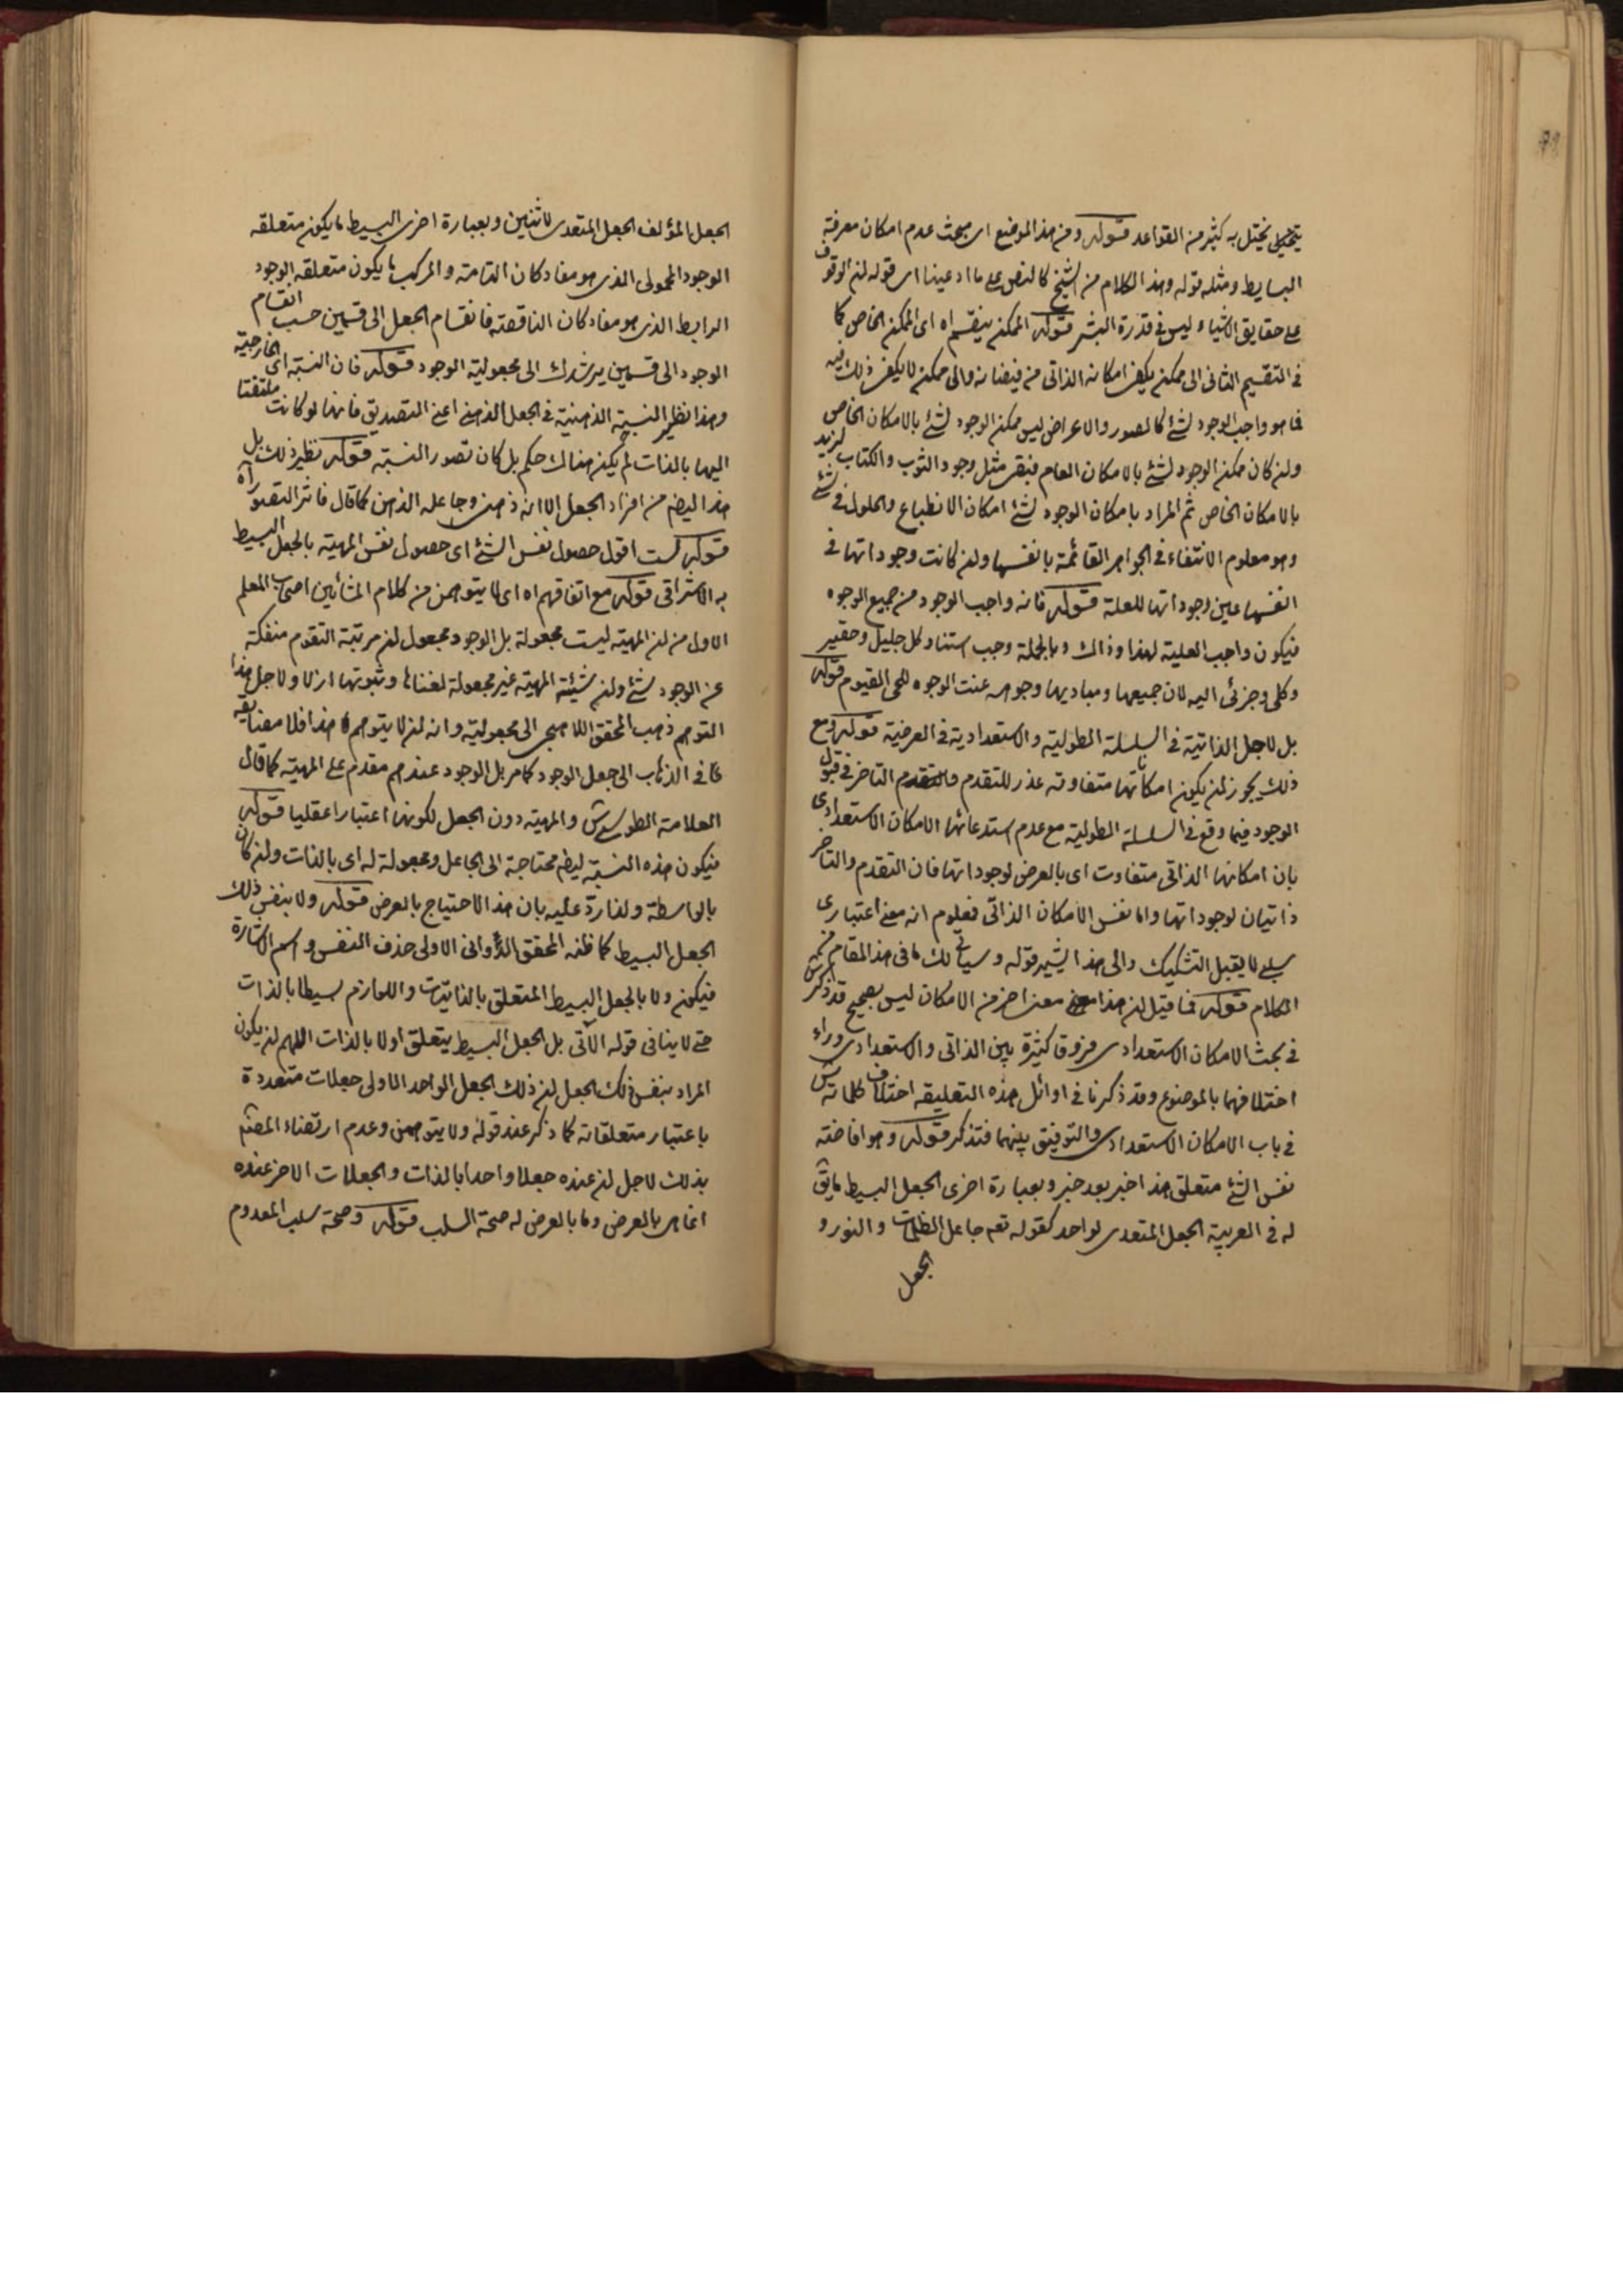 يختل به كثير من القواعد قوله ومن هذا الموضع اى مبحث عدم امكان معرفة
البسايط ومثله قوله وهذا الكلام من الشيخ كالنص على ما ادعيناه اى قوله ان الوقوف
على حقايق الاشياء ليس فى قدرة البشر قوله الممكن ينقسم اه اى الممكن الخاص كما
فى التقسيم الثانى الى ممكن يكفى امكانه الذاتى من فيضانه والى ممكن لا يكفى ذلك فيه
فما هو واجب الوجود لشئ كالصور والاعراض ليس ممكن الوجود لشئ بالامكان الخاص
وان كان ممكن الوجود لشئ بالامكان العام فبقى مثل وجود الثوب والكتاب لزيد
بالامكان الخاص ثم المراد بامكان الوجود لشئ امكان الانطباع والحلول فى شئ
وهو معلوم الانتفاء فى الجواهر القائمة بانفسها وان كانت وجوداتها فى
انفسها عين وجوداتها للعلة قوله فانه واجب الوجود من جميع الوجوه
فيكون واجب العلية لهذا وذاك وبالجملة وجب استناد كل جليل وحقير
وكلى وجزئى اليه لان جميعها ومباديها وجوه عنت الوجوه للحى القيوم قوله
بل لاجل الذاتية فى السلسلة الطولية والاستعدادية فى العرضية قوله ومع
ذلك يجوز ان يكون امكاناتها متفاوتة عذر للتقدم والتاخر فى قبول
الوجود فيما وقع فى السلسلة الطولية مع عدم استدعائها الامكان الاستعدادى
بان امكانها الذاتى متفاوت اى بالعرض لوجوداتها فان التقدم والتاخر
ذاتيان لوجوداتها واما نفس الامكان الذاتى فمعلوم انه معنى اعتبارى
سلبى لا يقبل التشكيك والى هذا يشير قوله وسياتى لك ما فى هذا المقام من
الكلام قوله فما قيل ان هذا معنى اخر من الامكان ليس بصحيح قد ذكر
فى بحث الامكان الاستعدادى فروقا كثيرة بين الذاتى والاستعدادى وراء
اختلافهما بالموضوع وقد ذكرنا فى اوائل هذه التعليقة اختلاف كلماته
فى باب الامكان الاستعدادى والتوفيق بينهما فتذكر قوله وهو افاضة
نفس الشئ متعلق هذا خبر بعد خبر وبعبارة اخرى الجعل البسيط ما يق
له فى العربية الجعل المتعدى لواحد كقوله تعه جاعل الظلمات والنور و
الجعل
الجعل المؤلف الجعل المتعدى لاثنين وبعبارة اخرى البسيط ما يكون متعلقه
الوجود المحمولى الذى هو مفاد كان التامة والمركب ما يكون متعلقه الوجود
الرابط الذى هو مفاد كان الناقصة فانقسام الجعل الى قسمين حسب انقسام
الوجود الى قسمين يرشدك الى مجعولية الوجود قوله فان النسبة اى الخارجية
وهذا نظير النسبة الذهنية فى الجعل الذهنى اعنى التصديق فانها لو كانت ملتفتا
اليها بالذات لم يكن هناك حكم بل كان تصور النسبة قوله نظير ذلك بل
هذا ايضا من افراد الجعل الا انه ذهنى وجاعله الذهن كما قال فاثر التصور اه
قوله لست اقول حصول نفس الشئ اى حصول نفس المهية بالجعل البسيط
به الاشراقى قوله مع اتفاقهم اه اى لا يتوهمن من كلام المشائين اصحاب المعلم
الاول من ان المهية ليست مجعولة بل الوجود مجعول ان مرتبة التقوم منفكة
عن الوجود شئ وان شيئية المهية غير مجعولة لغنائها وثبوتها ازلا ولاجل هذا
التوهم ذهب المحقق اللاهيجى الى مجعولية وانه ان لا يتوهم هذا فلا مضايقة
عما فى الذهاب الى جعل الوجود كما مر بل الوجود عندهم مقدم على المهية كما قال
العلامة الطوسى والمهية دون الجعل لكونها اعتبارا عقليا قوله
فيكون هذه النسبة ايضا محتاجة الى الجاعل ومجعولة له اى بالذات وان كان
بالواسطة ولذا رد عليه بان هذا الاحتياج بالعرض قوله ولا بنفس ذلك
الجعل البسيط كما ظنه المحقق الدوانى الاولى حذف النفس واسم الاشارة
فيكون ولا بالجعل البسيط المتعلق بالذاتيات واللوازم بسيطا بالذات
حتى لا ينافى قوله الاتى بل الجعل البسيط يتعلق اولا بالذات اللهم ان يكون
المراد بنفس ذلك الجعل ان ذلك الجعل الواحد الاولى جعلات متعددة
باعتبار متعلقاته كما ذكر عند قوله ولا يتوهمن وعدم ارتضاء المصنف
بذلك لاجل ان عنده جعلا واحدا بالذات والجعلات الاخر عنده
انما هى بالعرض وما بالعرض له صحة السلب قوله وصحة سلب المعدوم